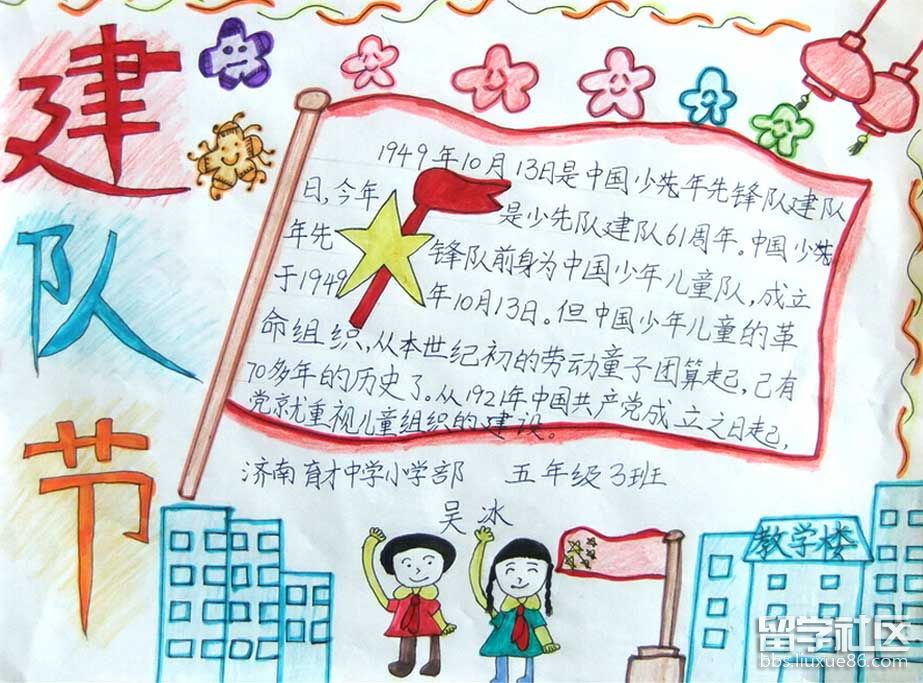 建队节
1949年10月13日是中国少先年先锋队建队
日,今年是少先队建队61周年。中国少先
年先锋队前身为中国少年儿童队,成立
于1949年10月13日。但中国少年儿童的革
命组织,从本世纪初的劳动童子团算起,已有
70多年的历史了。从1921年中国共产党成立之日起,
党就重视儿童组织的建设。
济南育才中学小学部 五年级3班
吴冰
教学楼
留学社区
bbs.liuxue86.com